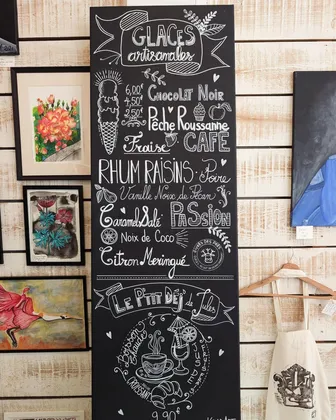 GLACES
artisanales
6,00
4,50
2,50
CHOCOLAT NOIR
PêCHE ROUSSANNE
Fraise
CAFÉ
RHUM RAISINS
Poire
Vanille Noix de Pécan
Caramel Salé
PASSION
Noix de Coco
Citron Meringué
LE P'TIT DÉJ de Jules
CROISSANT
9,90€